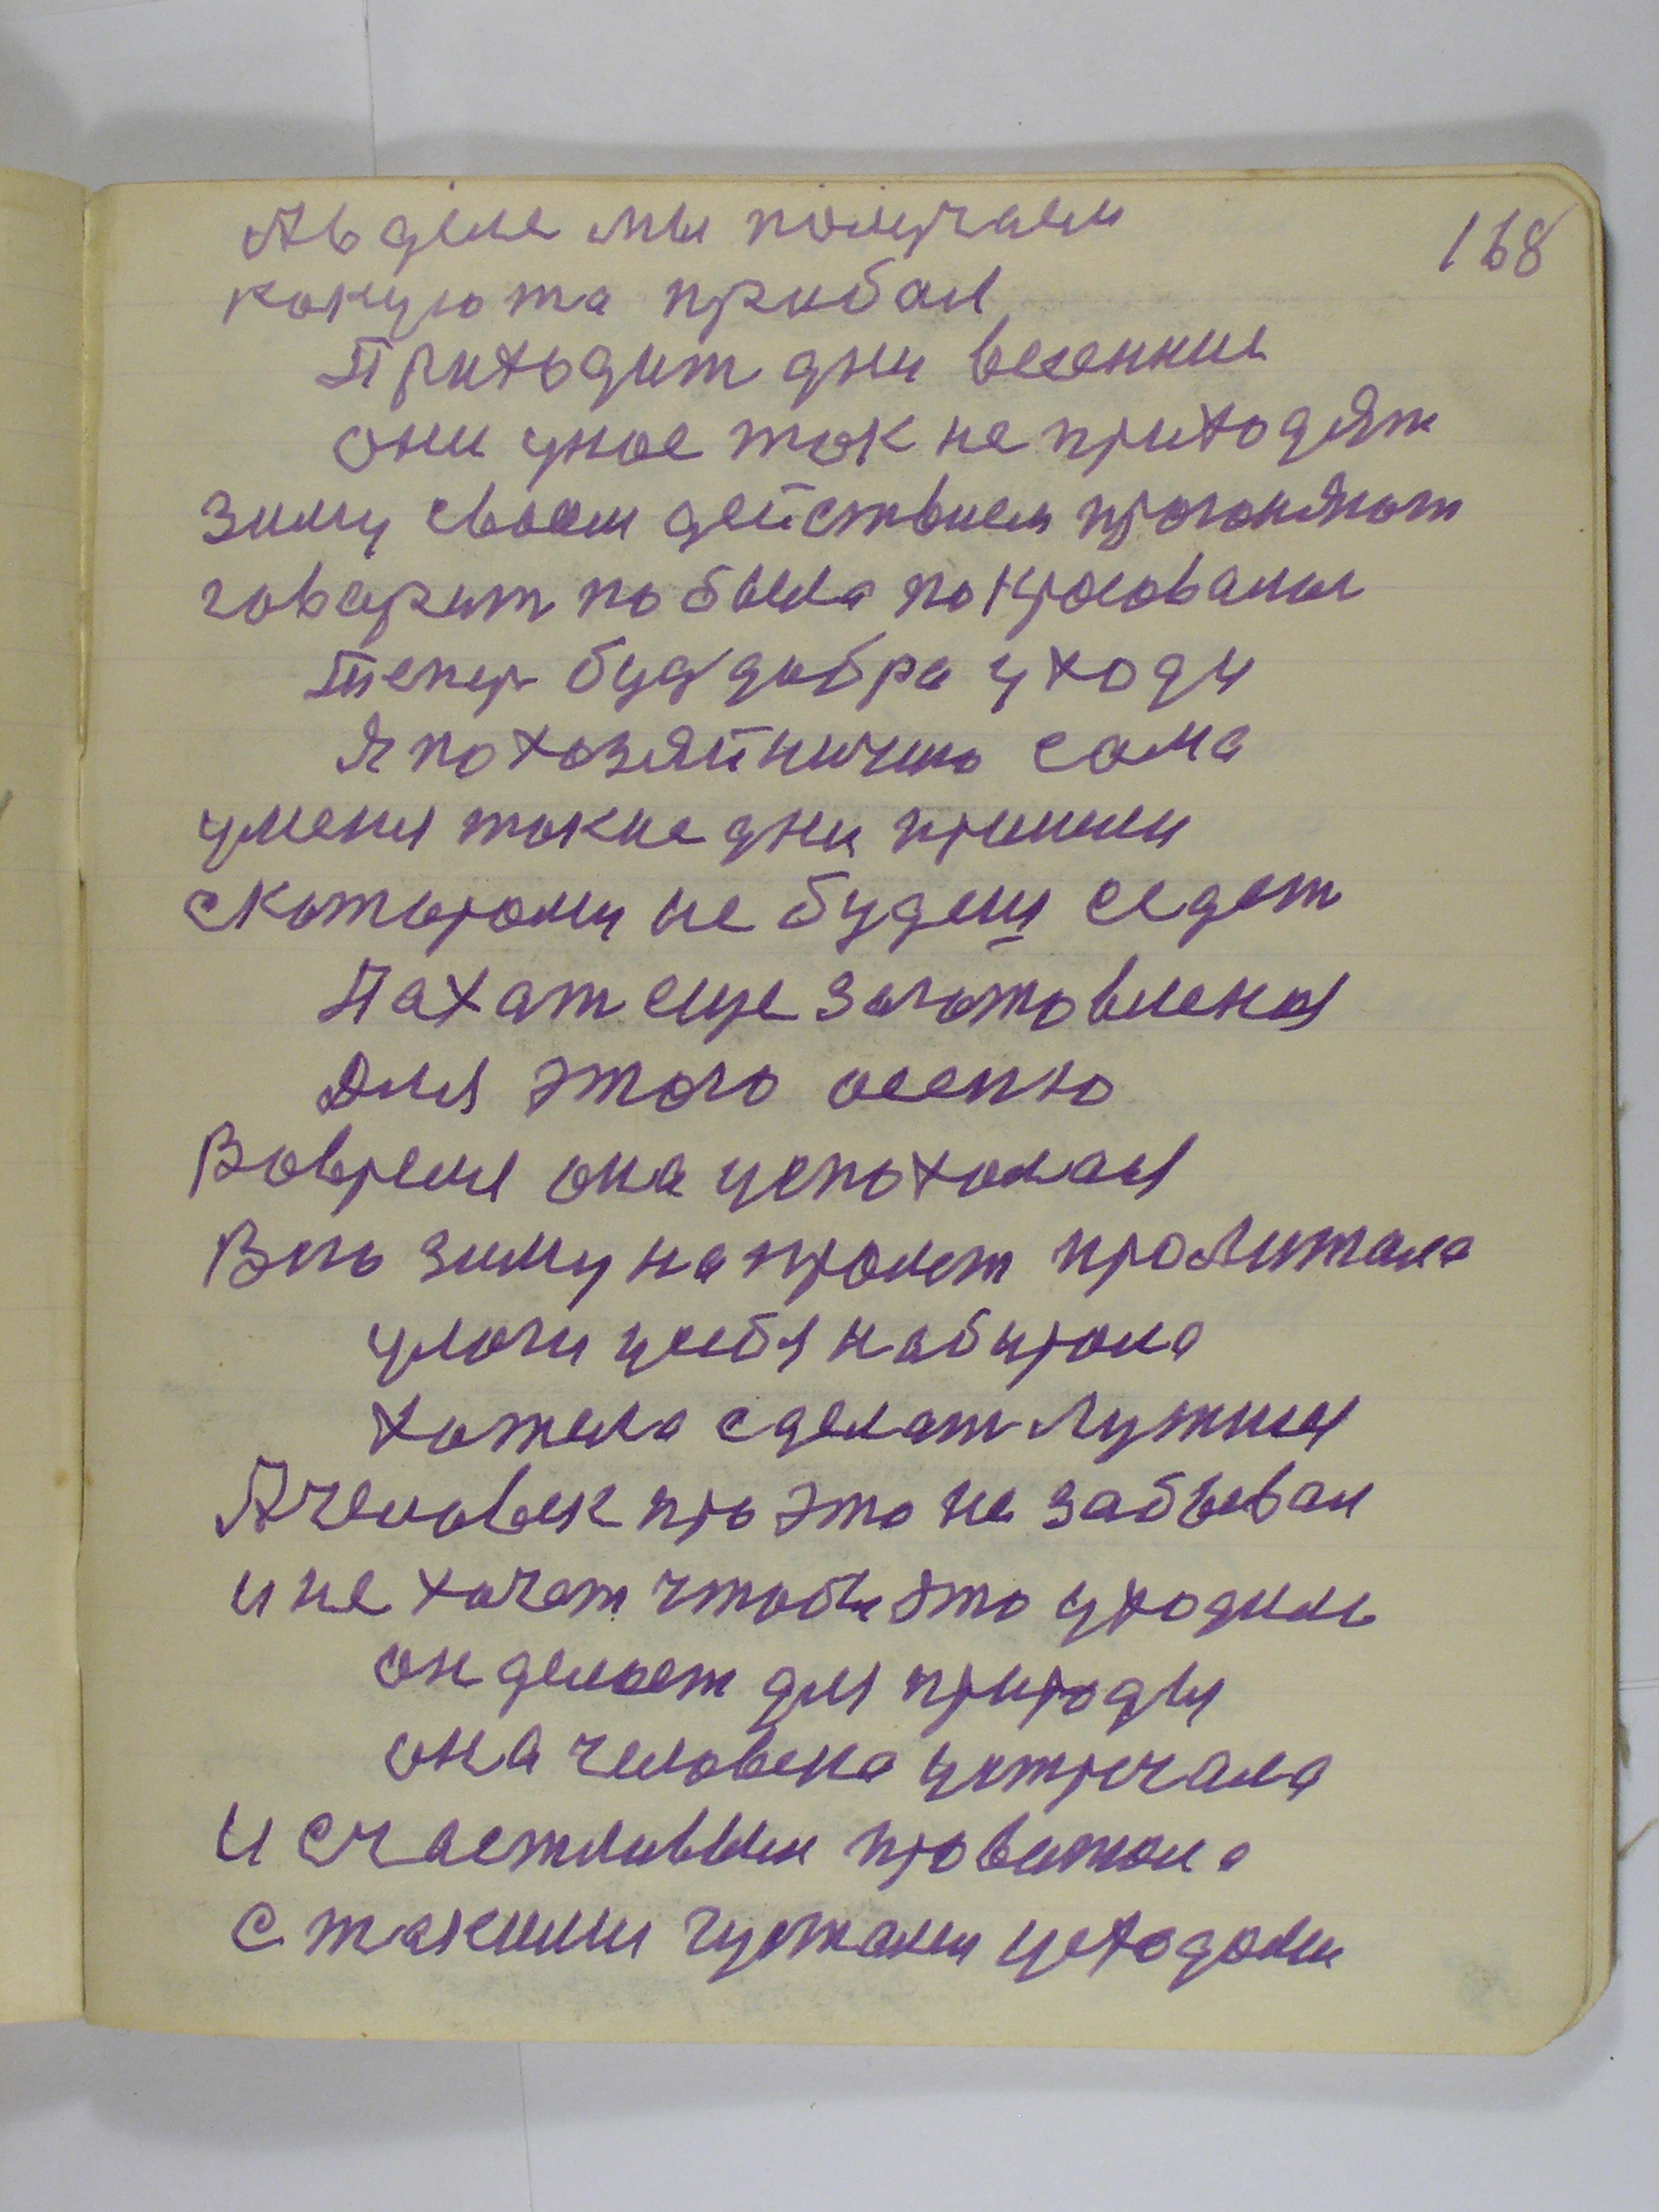 А в деле мы получаем
какуюта прибал
168
Приходит дни весенние
они у нас так не приходят
зиму своем действием прогоняют
говарит побыла покрасовалы
тепер буд добра уходи
я похозяйничию сама
у меня такие дни пришли
скоторами не будеш седет
Пахат еще заготовления
Для этого осеню
Вовремя она успохалая
Всю зиму на пролет пролитала
улоги усебя набирала
хотела сделат лутшия
А человек про это не забывал
и не хочет чтобы это уходили
он делает для природы
она человека устречала
и счастливым провитала
с такими густами усходами